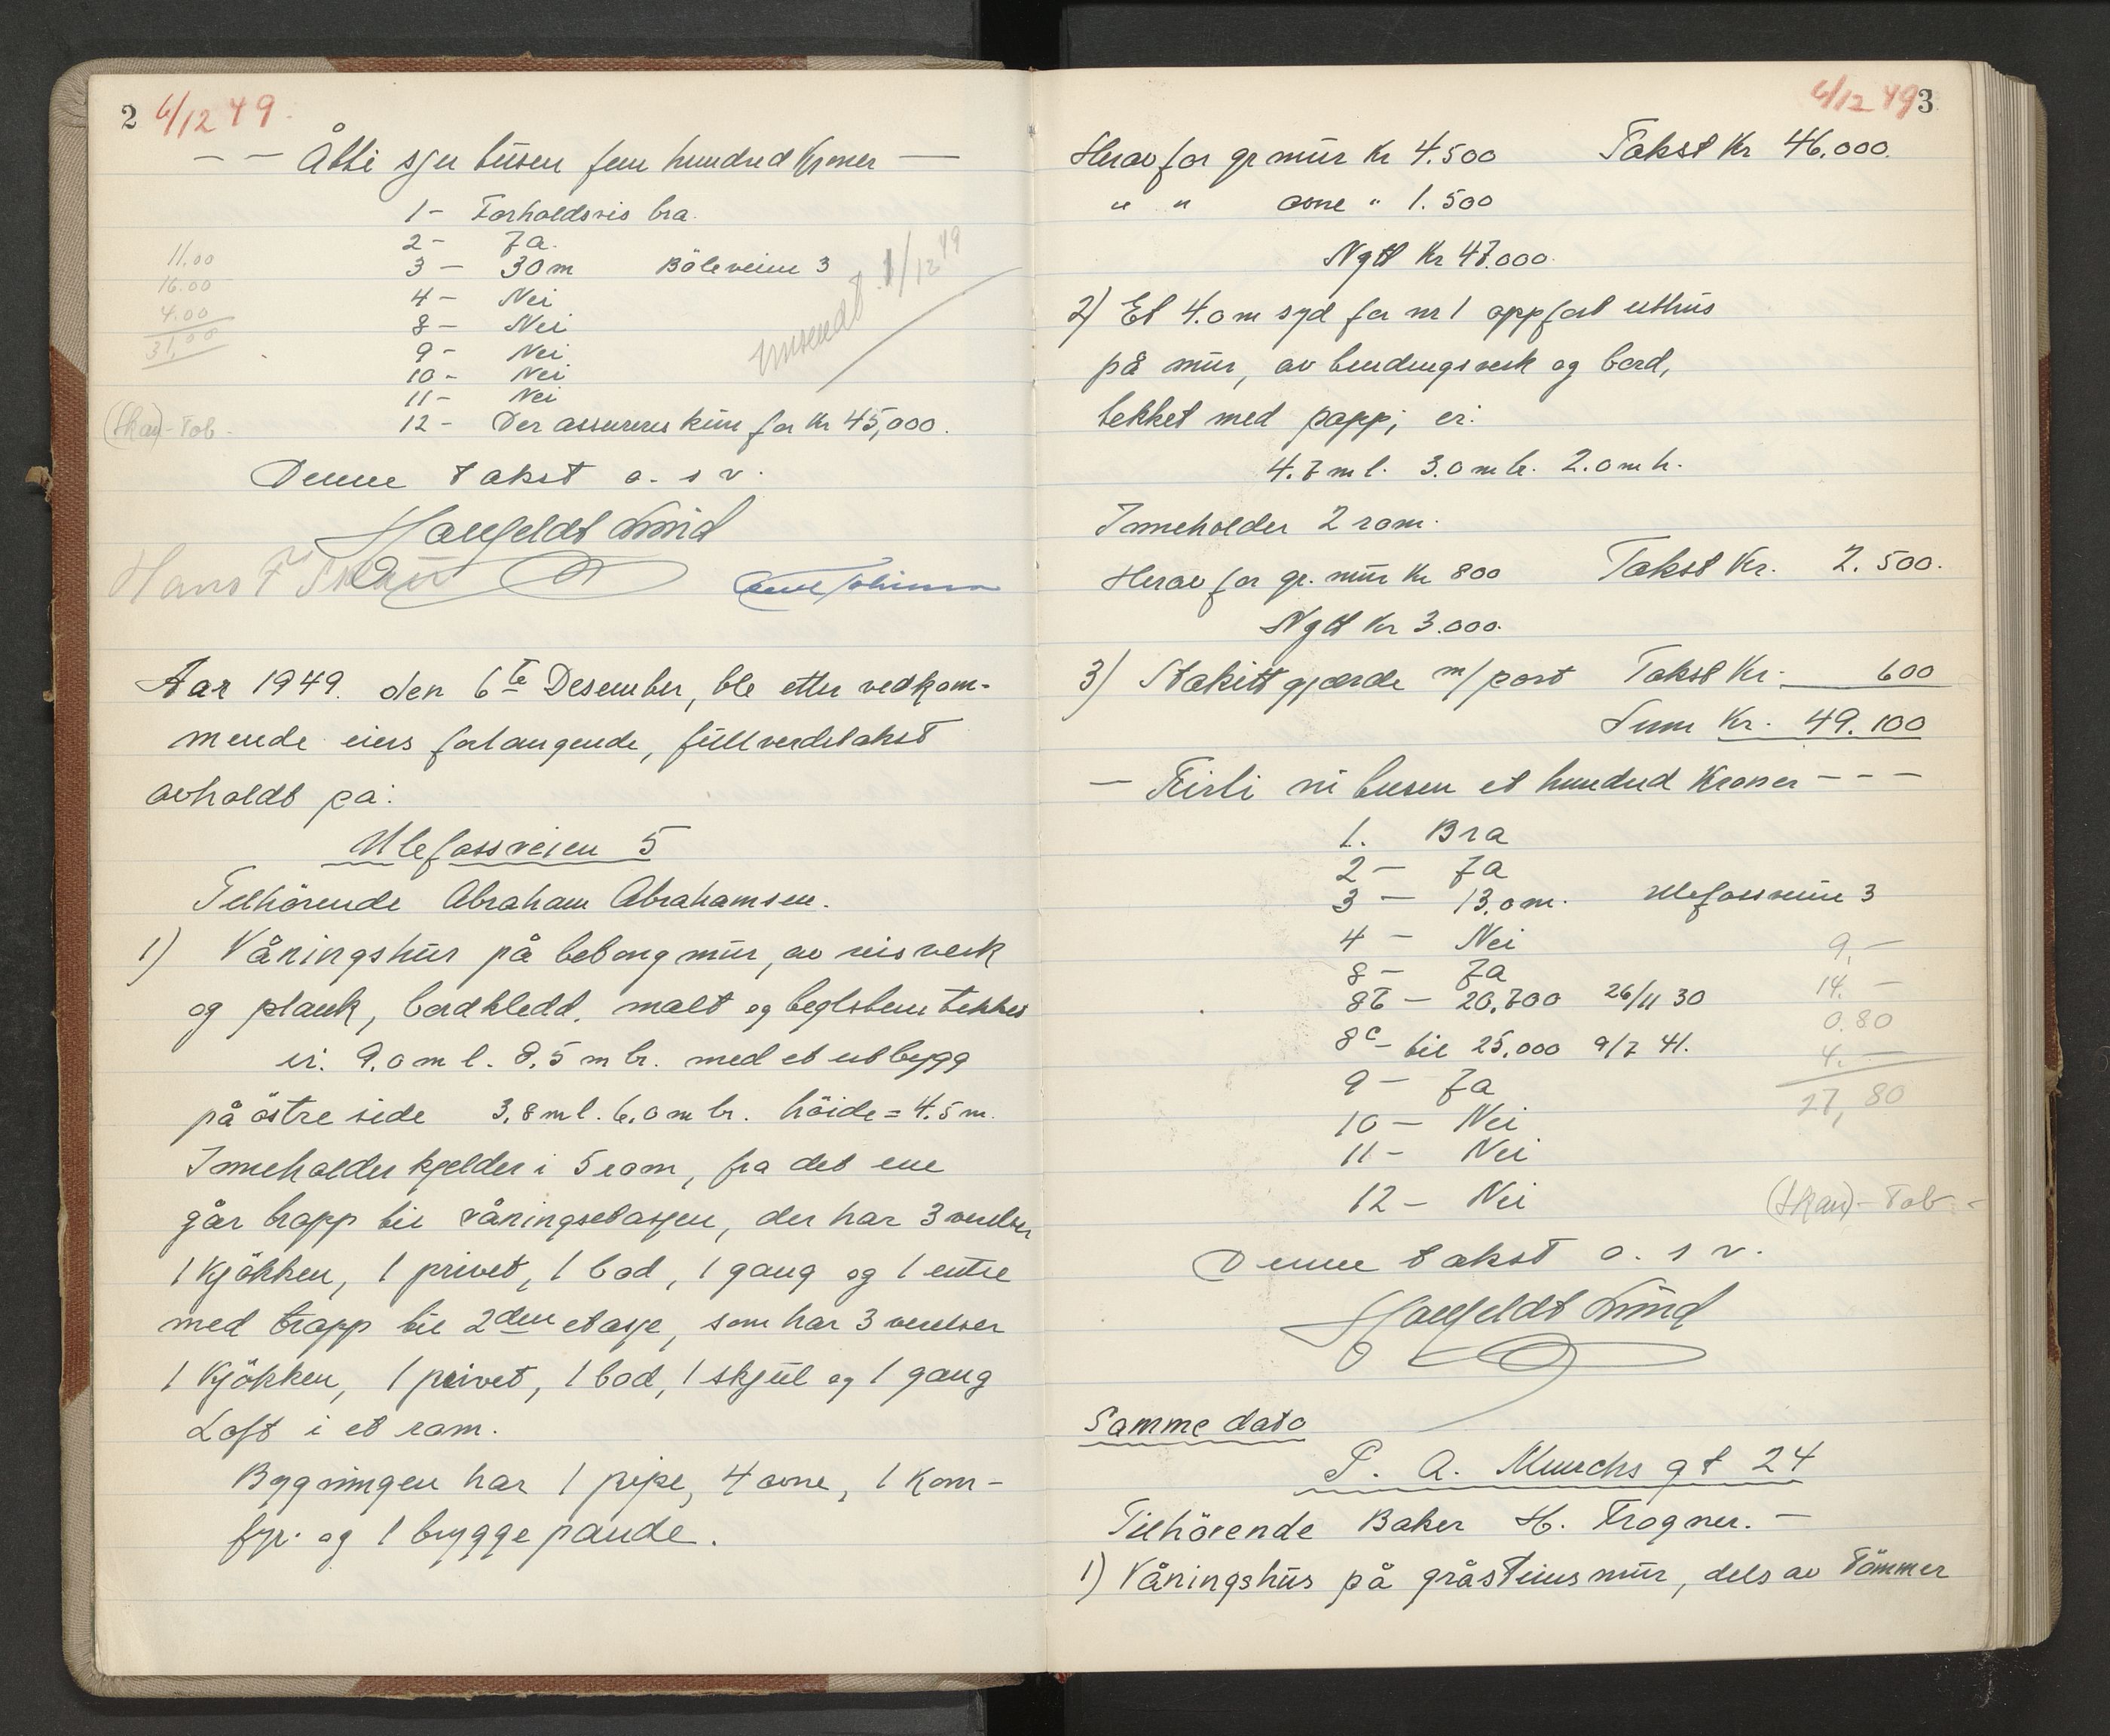 2 6/12 49.
- - Åtti sju tusen fem hundred Kroner -
1- Forholdsvis bra.
2- Ja.
3- 30 m Böleveien 3
4- Nei
8- Nei
9- Nei
10- Nei
11- Nei
12- Der assureres kun for Kr 45,000.
11.00
16.00
4.00
31,00
Innsendt 1/12 49
(Skau)-Tob-
Denne takst o. s v.
Haufeldt Lund
Hans F Skau
Aar 1949. den 6te Desember, ble etter vedkom-
mende eiers forlangende, fullverditakst
avholdt på:
Ulefossveien 5
Tilhörende Abraham Abrahamsen.
1) Våningshus på betongmur, av reisverk
og plank, bordkledd, malt og teglsten tekket
er: 9.0 m l. 8.5 m br. med et utbygg
på östre side 3.8 m l. 6.0 m br. höide = 4.5 m.
Inneholder kjelder i 5 rom, fra det ene
går trapp til våningsetasjen, der har 3 verelser
1 Kjökken, 1 privet, 1 bod, 1 gang og 1 entre
med trapp til 2den etasje, som har 3 verelser
1 Kjökken, 1 privet, 1 bod, 1 skjul og 1 gang
Loft i et rom.
Bygningen har 1 pipe, 4 ovne, 1 Kom-
fyr. og 1 bryggepande.
6/12 49 3
Herav for gr mur Kr 4.500 Takst Kr 46.000.
" " ovne " 1.500
Nytt Kr 47.000.
2) Et 4.0 m syd for nr 1 oppfört uthus
på mur, av bindingsverk og bord,
tekket med papp; er:
4.7 m l. 3.0 m br. 2.0 m h.
Inneholder 2 rom.
Herav for gr. mur Kr 800 Takst Kr. 2.500.
Nytt Kr 3.000.
3) Stakittgjerde m/port Takst Kr. 600
Sum Kr. 49.100
- Firti ni tusen et hundred Kroner - - -
1. Bra
2- Ja
3- 13.0 m. Ulefossveien 3
4- Nei
8- Ja
8b- 20.700 26/11 30
8c- til 25.000 9/7 41.
9- Ja
10- Nei
11- Nei
12- Nei
9.-
14.-
0.80
4.-
27,80
(Skau)-Tob-
Denne takst o. s v.
Haufeldt Lund
Samme dato
P. A. Munchs gt 24
Tilhörende Baker H. Frogner. -
1) Våningshus på gråstensmur, dels av Tömmer